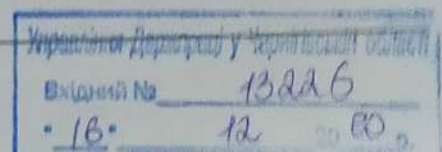 Управління Держпраці у Чернігівській області
Вхідний № 13226
"16" 12 20 р.